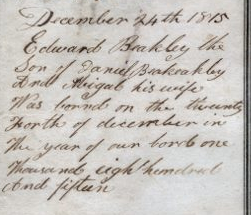 December 24th 1815
Edward Brakley the
Son of Daniel Brakeakley
And Abigal his wife
Was bornd on the twenty
Forth of december in
The year of our lord one
thousand eigh hundred
And fifteen